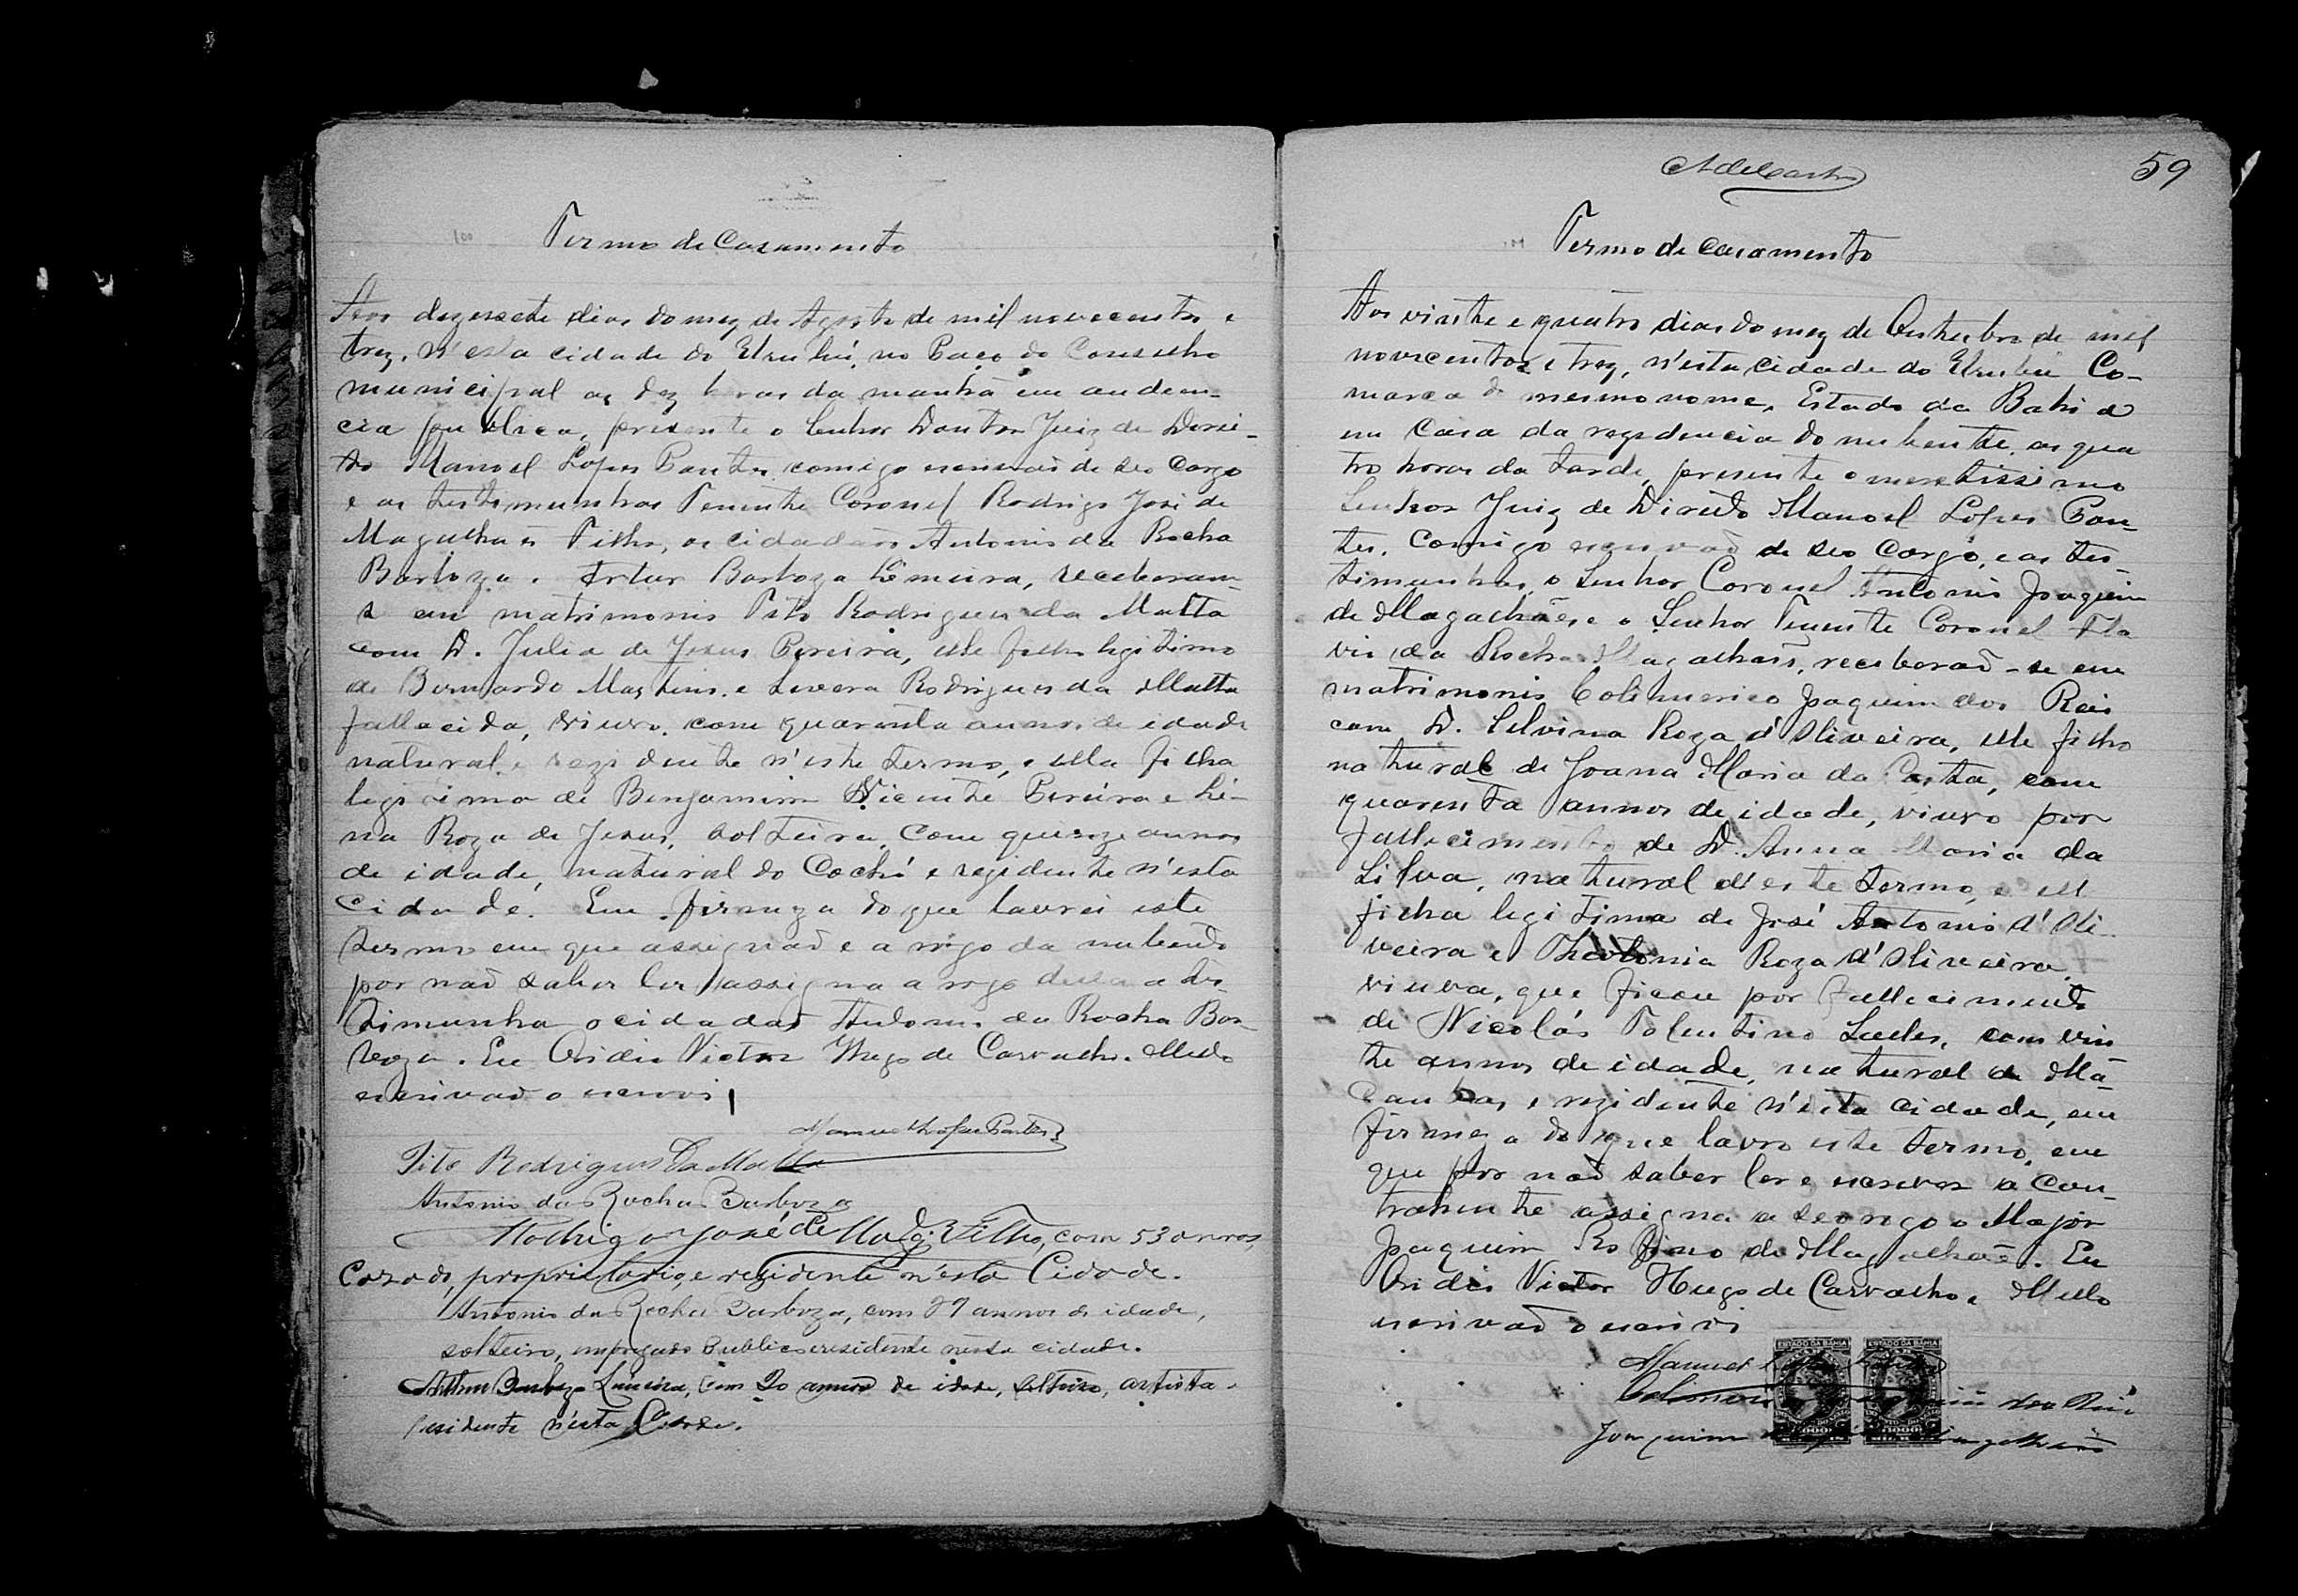 Termo de Casamento
Aos dezessete dias do mez de Agosto de mil novecentos e
trez, n'esta cidade do Urubú, no Paço do Conselho
municipal as dez horas da manhã em audien-
cia publica, presente o Senhor Doutor Juiz de Direi-
to Manoel Lopes Pontes, comigo escrivaõ de seo Cargo
e as testimunhas Tenente Coronel Rodrigo José de
Magalhaẽs Filho, os cidadaõs Antonio da Rocha
Barboza. Artur Barboza Limeira, receberam-
s em matrimonio Tito Rodrigues da Matta
com D. Julia de Jesus Pereira, elle filho legitimo
de Bernardo Martins e Rodrigues da Matta
fallecida, viuvo, com quarenta annos de idade
natural e rezidente n'este termo, e ella filha
legitima de Benjamim Vicente Pereira e Li-
na Roza de Jesus, solteira, com quinze annos
de idade, natural do Cochó e rezidente n'esta
Cidade. Em firmeza do que lavrei este
termo em que assignaõ e a rogo da nubente
por naõ saber ler assigna a rogo della a tes-
timunha o cidadaõ Antonio da Rocha Bar-
boza. Eu Ovidio Victor Hugo de Carvalho e Mello
escrivaõ o escrevi
Manuel Lopes Pontes
Tito Rodrigues da Matta
Antonio da Rocha Barboza
Rodrigo José de Mag. Filho, com 53 annos,
Cazado, proprietario, e rezidente n'esta Cidade.
Antonio da Rocha Barboza, com 29 annos de idade,
solteiro, empregado Publico e residente nesta cidade.
Arthur Barboza Limeira, com 20 annos de idade, solteiro, artista,
residente n'esta Cidade.
59
Termo de casamento
Aos vinte e quatro dias do mez de Outubro de mil
novecentos e trez, n'esta cidade do Urubú Co-
marca do mesmo nome, Estado da Bahia
em casa da rezidencia do nubente, as qua
tro horas da tarde, presente o meretissimo
Senhor Juiz de Direito Manoel Lopes Pon-
tes, Comigo escrivaõ de seo Cargo, e as tes-
timunhas, o Senhor Coronel Antonio Joaquim
de Magalhaẽs e o Senhor Tenente Coronel Fla
vio da Rocha Magalhaẽs, receberaõ-se em
matrimonio Joaquim dos Reis
com D. Silvina Roza d'Oliveira, elle filho
natural de Joana Maria da Costa, com
quarenta annos de idade, viuvo por
fallecimento de D. Anna Maria da
Silva, natural d'este termo, e ell
filha legitima de José Antonio d'Oli-
veira e Theotonia Roza d'Oliveira,
viuva, que ficou por fallecimento
de Nicolás Tolentino com vin
te annos de idade, natural de Ma-
caubas e rezidente n'esta cidade, em
firmeza do que lavro este termo, em
que por naõ saber ler e escrever a Con-
trahente assigna a seo rogo o Major
Joaquim de Magalhaẽs. Eu
Ovidio Victor Hugo de Carvalho e Mello
escrivaõ o escrevi
Manuel Lopes Pontes
dos Reis
Joaquim Magalhaẽs
ESTADO DA BAHIA
ESTADO DA BAHIA
1000
1000